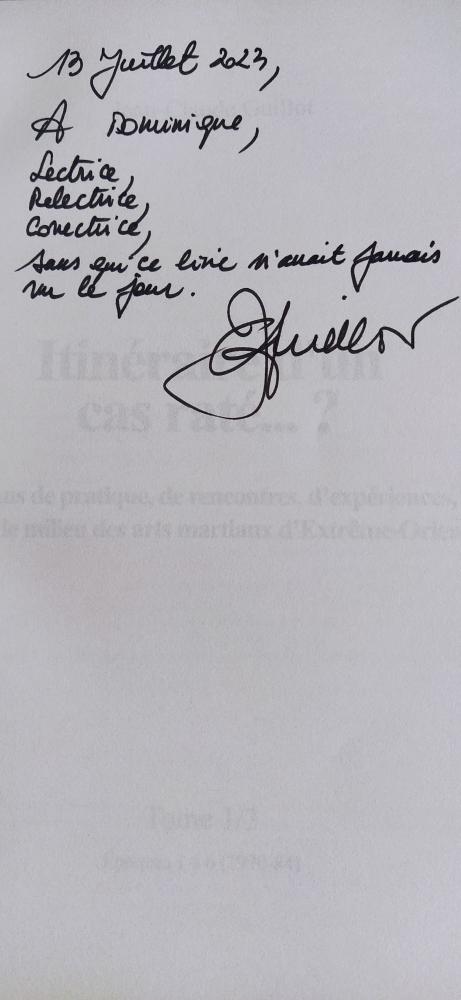 13 Juillet 2023,
Jean-Claude Guillot
A Dominique,
Lectrice,
Relectrice,
Correctrice,
Sans qui ce livre n'aurait jamais
vu le jour.
JGuillot
Itinéraire d'un
cas raté... ?
ans de pratique, de rencontres, d'expériences,
le milieu des arts martiaux d'Extrême-Orient
Tome 1/3